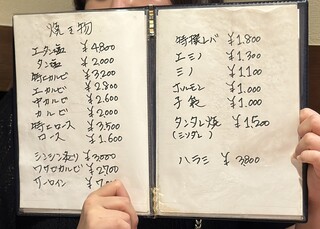 焼き物
上タン塩 ¥4,800
タン塩 ¥2,000
特上カルビ ¥3,200
上カルビ ¥2,800
中カルビ ¥2,600
カルビ ¥2,000
特上ロース ¥3,500
ロース ¥1,600
シンシン炙り ¥3,000
ワサビカルビ ¥2,700
サーロイン
特撰レバ ¥1,800
上ミノ ¥1,300
ミノ ¥1,100
ホルモン ¥1,000
子袋 ¥1,000
タンタレ焼 ¥1,500
ハラミ ¥3,800